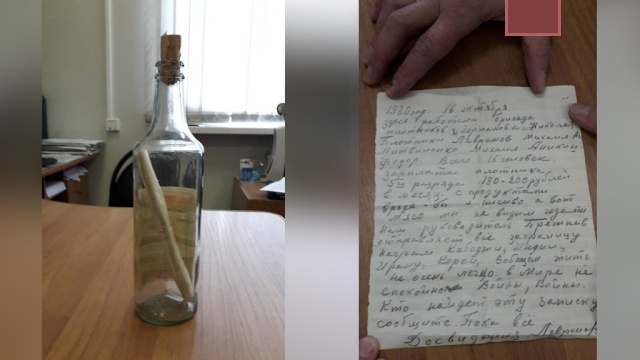 1980 год 16 октября
здесь работала бригада
плотников Михаил
Литвиненко Михаил Аникин
Федор. Всего 16 человек
зарплата плотника
5го разряда 180-200 рублей
в месяц с продуктами
вроде бы и ничиво а вот
мясо мы не видим годами
наш руководитель Брежнев
отправляет всё заграницу
неграм Кабоджи, Индии,
Ирану, Кореи, вобщем жить
не очень легко. в Мире не
спокойно Войны, Войны.
Кто найдет эту записку
сообщите. Пока всё
Досвидания